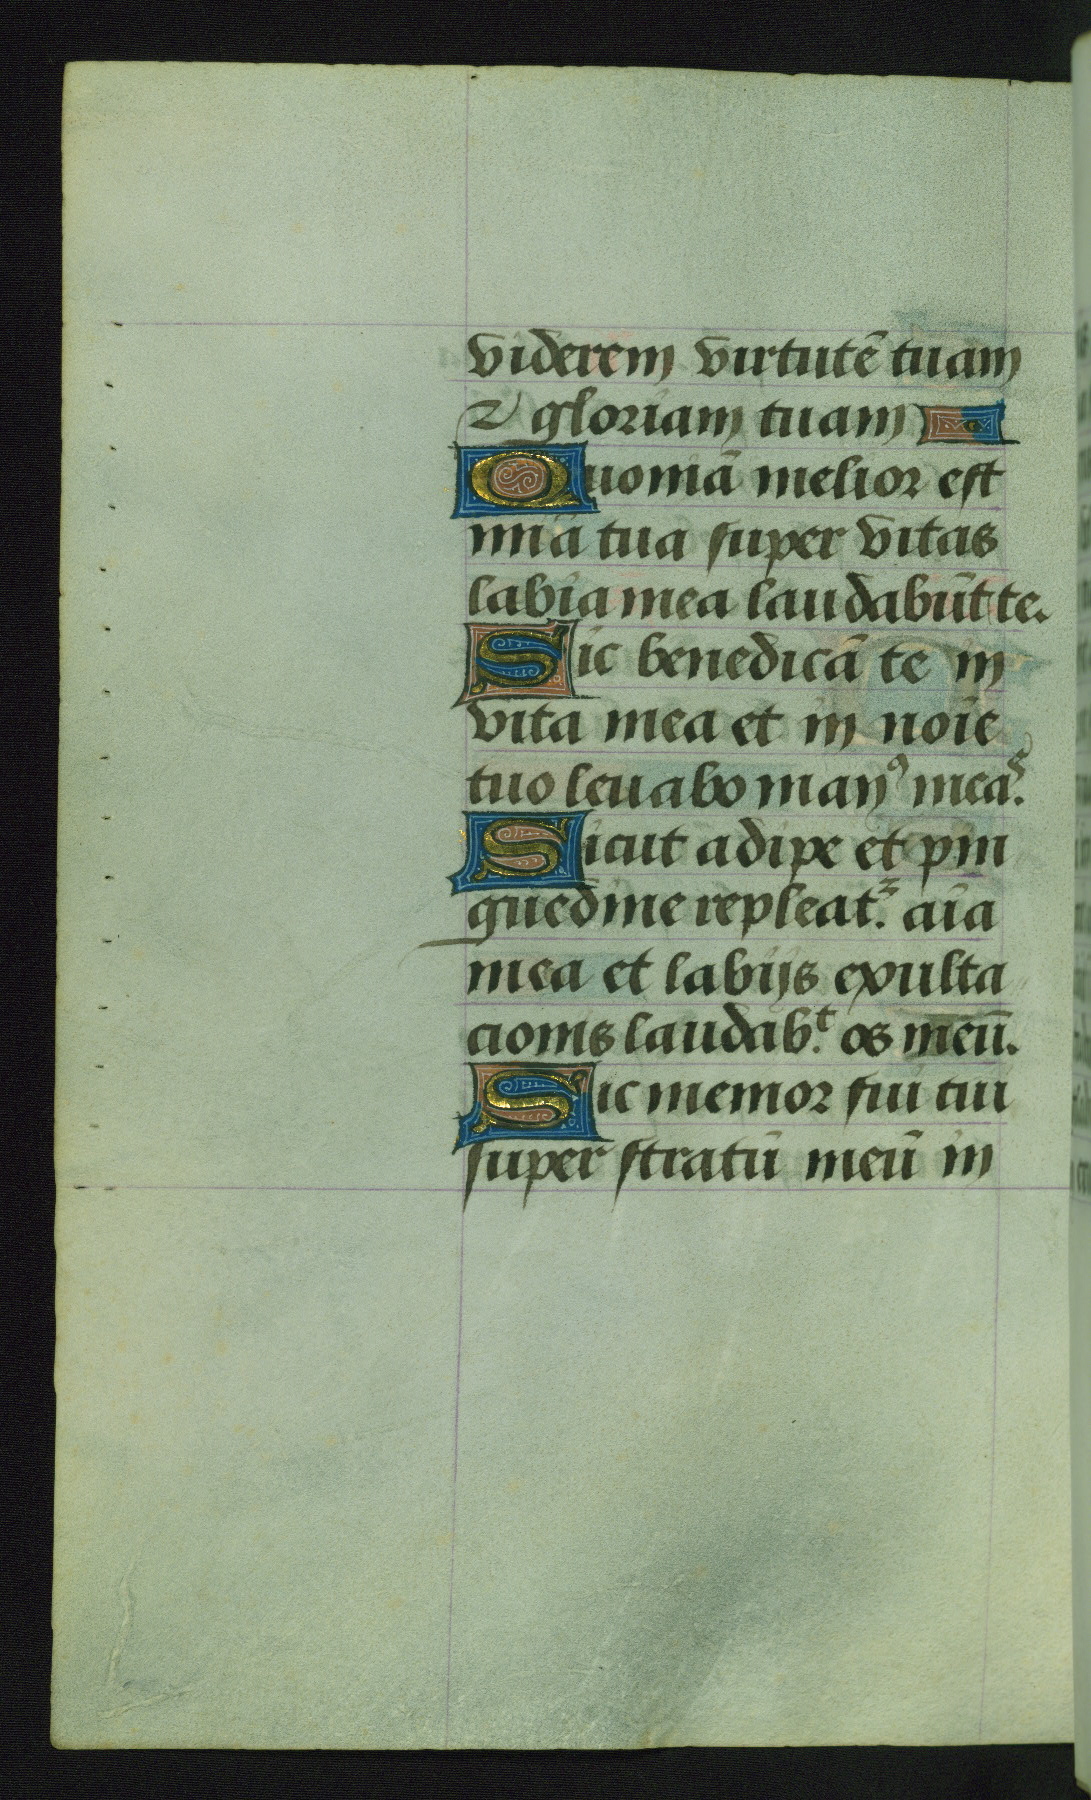 viderem virtutē tuam
⁊ gloriam tuam
Quoniā melior est
mīa tua super vitas
labia mea laudabūt te.
Sic benedicā te in
vita mea et in noīe
tuo leuabo manꝯ meaˢ.
Sicut adipe et pin
guedine repleat᷑. aīa
mea et labijs exulta
cionis laudab.ᵗ os meū.
Sic memor fui tui
super stratū meū in